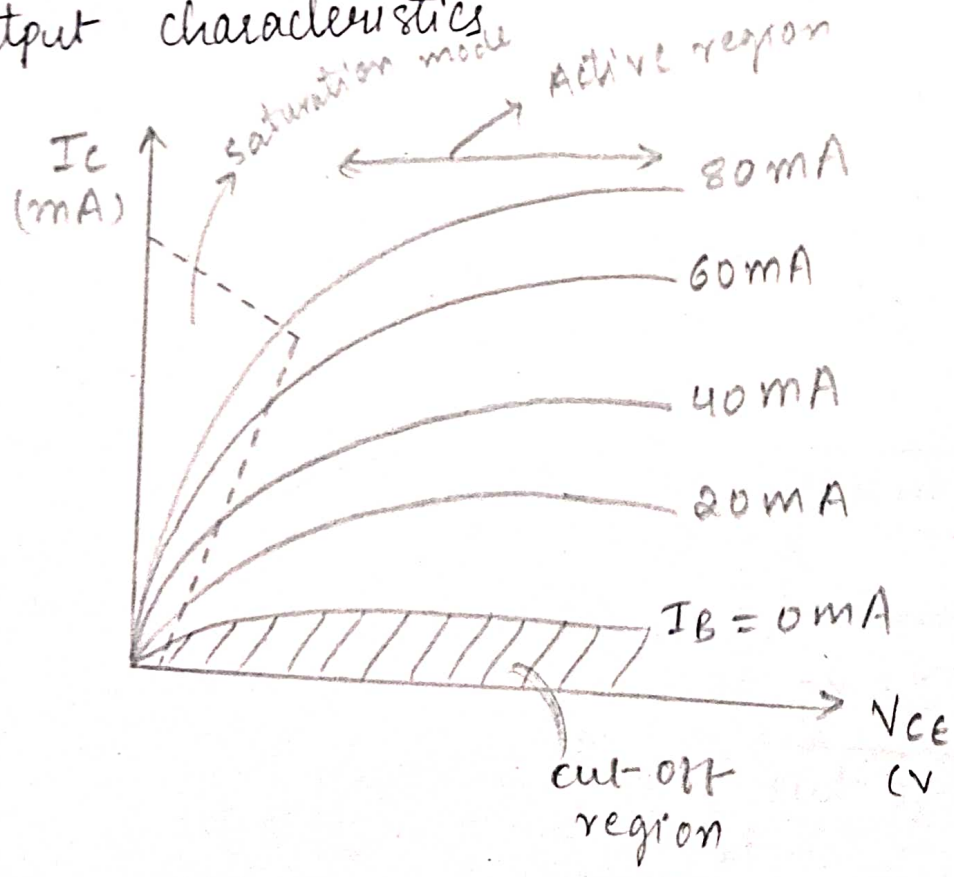 tput characteristics
saturation mode
Active region
Ic
(mA)
80mA
60mA
40mA
20mA
IB = 0mA
VCE
(V
cut-off
region